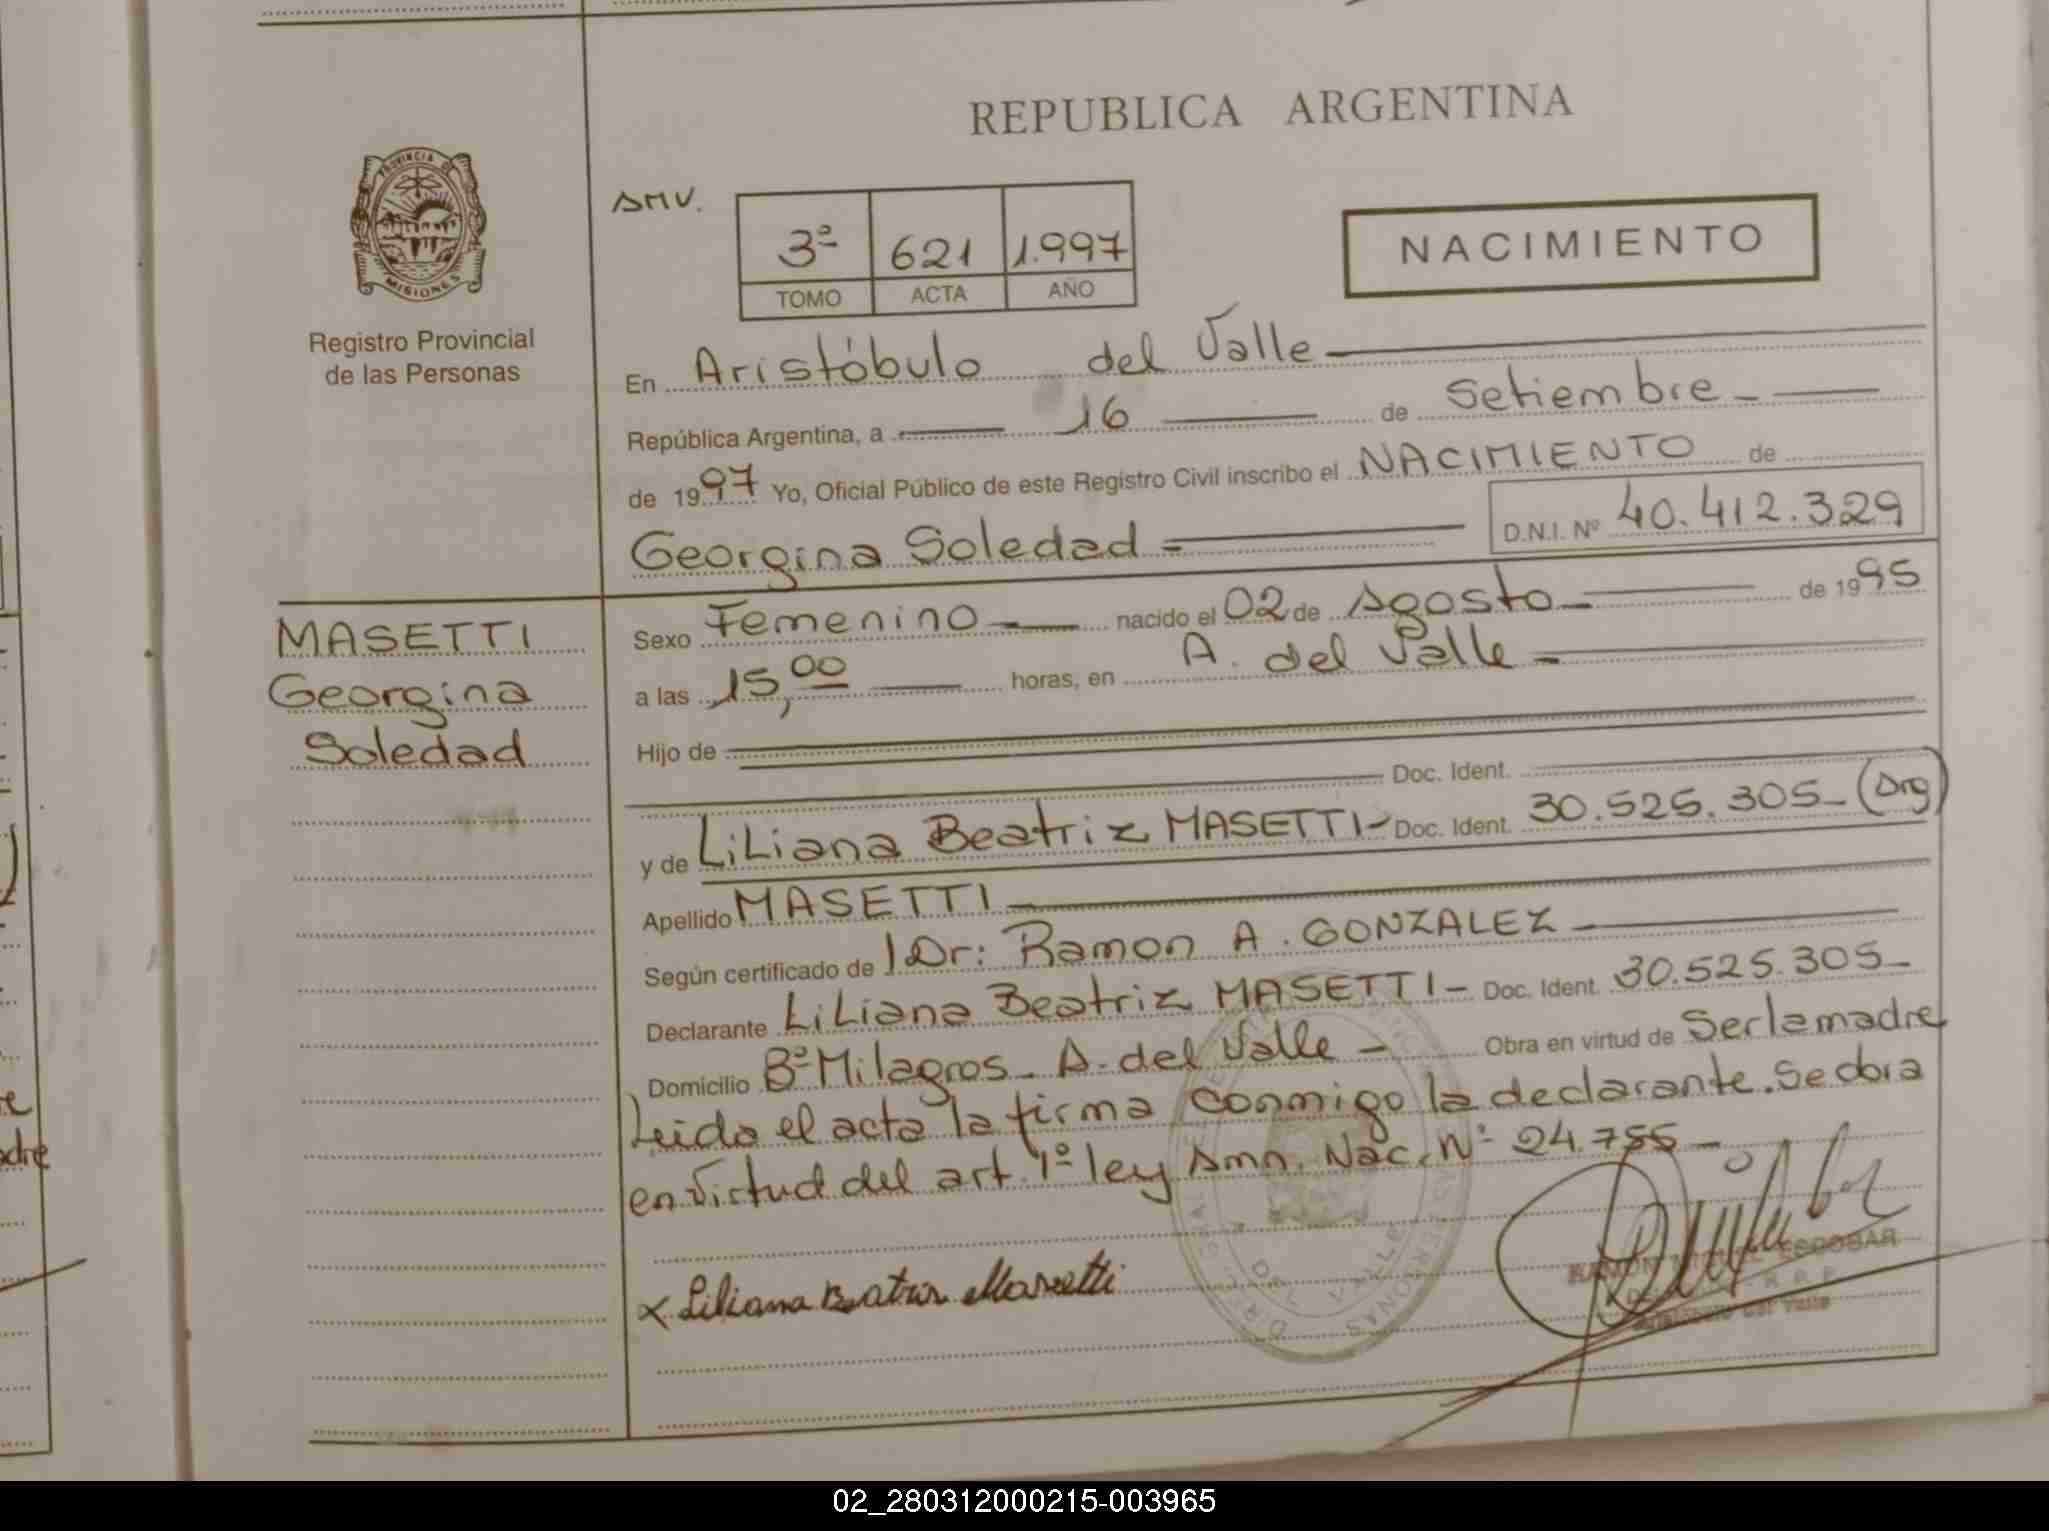 REPUBLICA ARGENTINA
PROVINCIA DE
MISIONES
Registro Provincial
de las Personas
AMV.
3º 621 1.997
TOMO ACTA AÑO
NACIMIENTO
En Aristóbulo del Valle
República Argentina, a 16 de Setiembre
de 1997 Yo, Oficial Público de este Registro Civil inscribo el NACIMIENTO de
Georgina Soledad D.N.I. Nº 40.412.329
MASETTI
Georgina
Soledad
Sexo Femenino nacido el 02 de Agosto de 1995
a las 15,00 horas, en A. del Valle
Hijo de
Doc. Ident.
y de LiLiana Beatriz MASETTI- Doc. Ident. 30.525.305- (Arg)
Apellido MASETTI
Según certificado de Dr: Ramon A. GONZALEZ
Declarante LiLiana Beatriz MASETTI- Doc. Ident. 30.525.305-
Domicilio Bº Milagros- A. del Valle - Obra en virtud de Ser la madre
Leido el acta la firma conmigo la declarante. Se obra
en virtud del art. 1º ley Amn. Nac. Nº 24.755-
x Liliana Beatriz Masetti
DEL VALLE
RAMON MIGUEL ESCOBAR
R.P.P.
Aristobulo del Valle
02_280312000215-003965